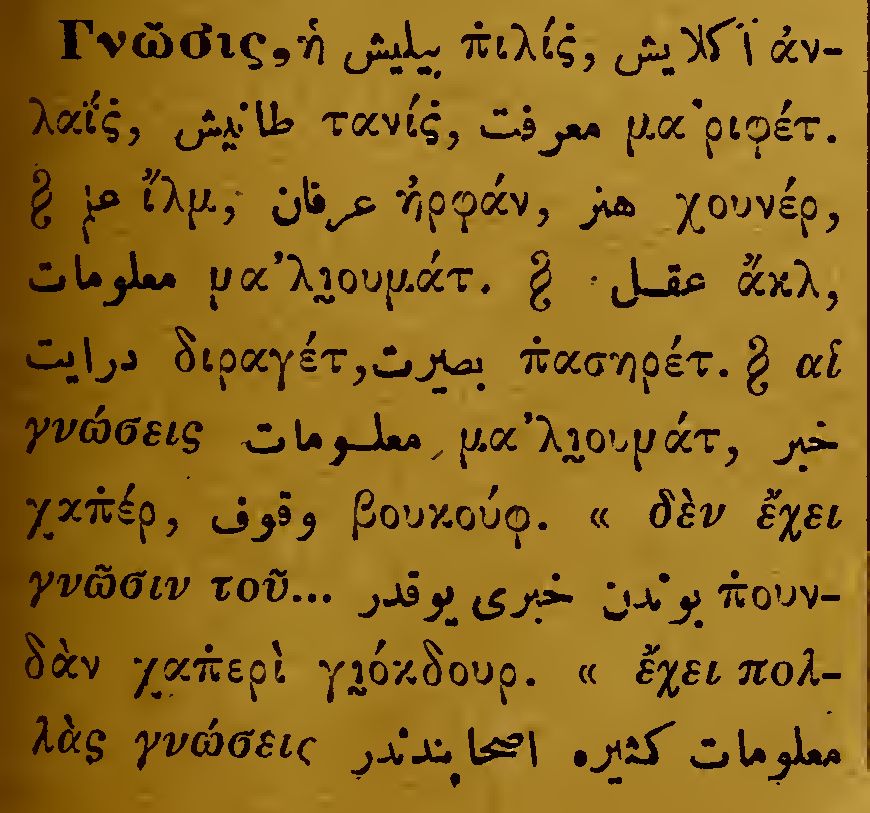 Γνῶσις, ἡ بيليش π̇ιλίς̇, آكلايش ἀν-
λαΐς̇, طانيش τανίς̇, معرفت μα᾿ριφέτ.
§ علم ἴλμ, عرفان ἠρφάν, هنر χουνέρ,
معلومات μα᾿λι̯ουμάτ. § عقل ἄκλ,
درايت διραγέτ, بصيرت π̇ασηρέτ. § αἱ
γνώσεις معلومات μα᾿λι̯ουμάτ, خبر
χ̣απ̇έρ, وقوف βουκούφ. « δὲν ἔχει
γνῶσιν τοῦ... بوندن خبرى يوقدر π̇ουν-
δὰν χ̣απ̇ερὶ γι̯όκδουρ. « ἔχει πολ-
λὰς γνώσεις معلومات كثيره اصحابندندر